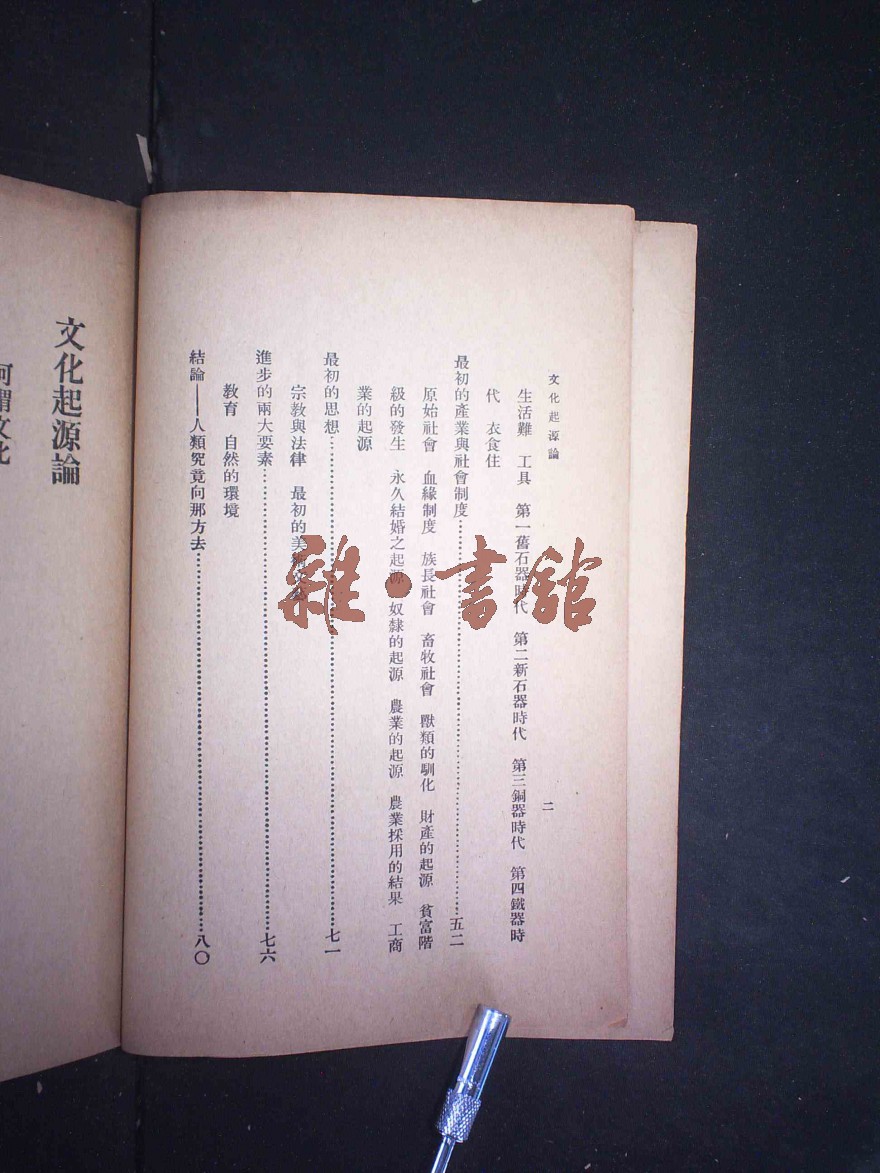 文化起源論
二
生活難　工具　第一舊石器時代　第二新石器時代　第三銅器時代　第四鐵器時
代　衣食住
最初的產業與社會制度……五二
原始社會　血緣制度　族長社會　畜牧社會　獸類的馴化　財產的起源　貧富階
級的發生　永久結婚之起源　奴隸的起源　農業的起源　農業採用的結果　工商
業的起源
最初的思想……七一
宗教與法律　最初的美術
進步的兩大要素……七六
教育　自然的環境
結論——人類究竟向那方去……八〇
文化起源論
何謂文化
雜·書館